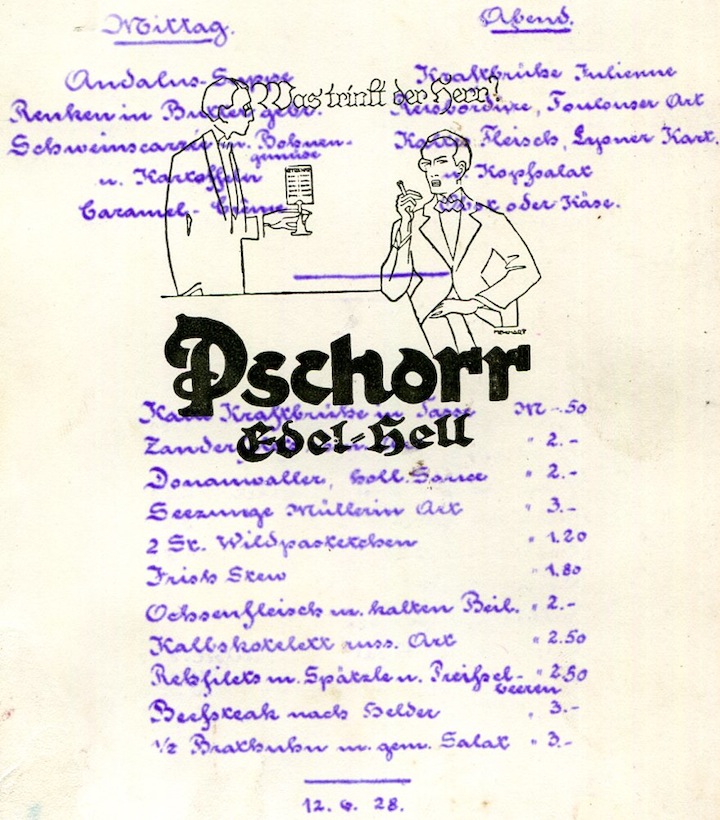 Mittag.
Andalus-Suppe
Renken in Butter gebr.
Schweinscarré m. Bohnen-
gemüse
u. Kartoffeln
Caramel-Crème
Abend.
Kraftbrühe Julienne
Reisbordüre, Toulouser Art
Kaltes Fleisch, Lyoner Kart.
u. Kopfsalat
Obst oder Käse.
Was trinkt der Herr?
Pschorr
Edel-Hell
Kalte Kraftbrühe in Tasse M -.50
Zander " 2.-
Donauwaller, holl. Sauce " 2.-
Seezunge Müllerin Art " 3.-
2 St. Wildpastetchen " 1.20
Irish Stew " 1.80
Ochsenfleisch m. kalten Beil. " 2.-
Kalbskotelett russ. Art " 2.50
Rehfilets m. Spätzle u. Preißel- " 2.50
beeren
Beefsteak nach Helder " 3.-
1/2 Brathuhn m. gem. Salat " 3.-
12. 6. 28.